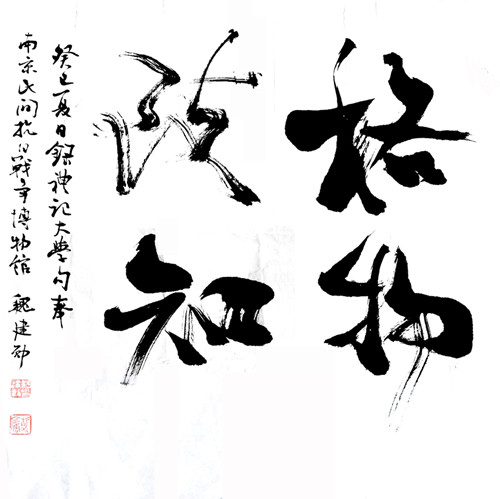 格物
致知
癸巳夏日録禮记大學句奉
南京民间抗日戰争博物館 魏建